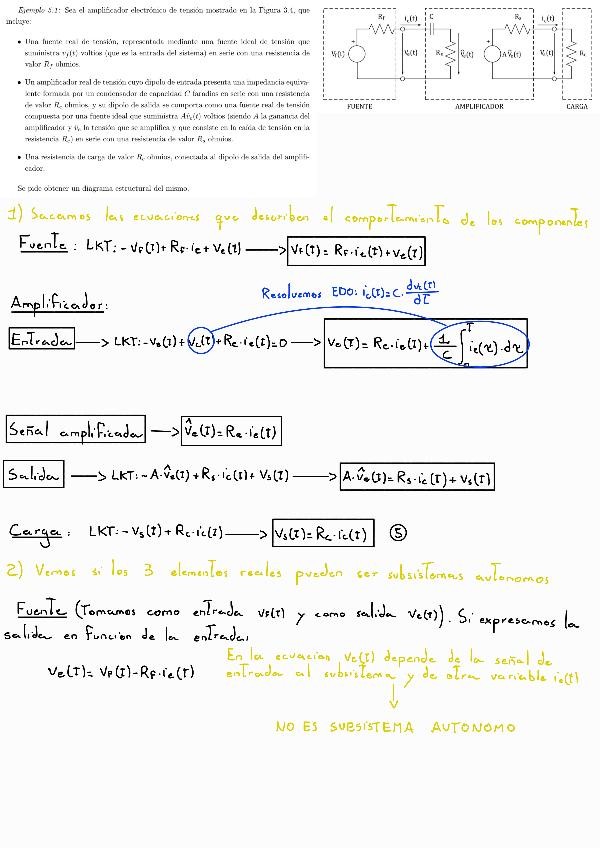 Ejemplo 5.1: Sea el amplificador electrónico de tensión mostrado en la Figura 3.4, que
incluye:
• Una fuente real de tensión, representada mediante una fuente ideal de tensión que
suministra v_f(t) voltios (que es la entrada del sistema) en serie con una resistencia de
valor R_f ohmios.
• Un amplificador real de tensión cuyo dipolo de entrada presenta una impedancia equiva-
lente formada por un condensador de capacidad C faradios en serie con una resistencia
de valor R_e ohmios, y su dipolo de salida se comporta como una fuente real de tensión
compuesta por una fuente ideal que suministra Av̂_e(t) voltios (siendo A la ganancia del
amplificador y v̂_e la tensión que se amplifica y que consiste en la caída de tensión en la
resistencia R_e) en serie con una resistencia de valor R_s ohmios.
• Una resistencia de carga de valor R_c ohmios, conectada al dipolo de salida del amplifi-
cador.
Se pide obtener un diagrama estructural del mismo.
R_f i_e(t) C R_s i_c(t)
V_f(t) V_e(t) R_e v̂_e(t) A v̂_e(t) V_s(t) R_c
FUENTE AMPLIFICADOR CARGA
1) Sacamos las ecuaciones que describen el comportamiento de los componentes
Fuente: LKT: -V_F(t)+R_F·i_e+V_e(t) → V_F(t)=R_F·i_e(t)+V_e(t)
Resolvemos EDO: i_c(t)=C·dv_c(t)/dt
Amplificador:
Entrada → LKT: -V_e(t)+V_c(t)+R_e·i_e(t)=0 → V_e(t)=R_e·i_e(t)+1/C ∫_0^t i_e(τ)·dτ
Señal amplificada → v̂_e(t)=R_e·i_e(t)
Salida → LKT: -A·v̂_e(t)+R_s·i_c(t)+V_s(t) → A·v̂_e(t)=R_s·i_c(t)+V_s(t)
Carga: LKT: -V_s(t)+R_c·i_c(t) → V_s(t)=R_c·i_c(t) ⑤
2) Vemos si los 3 elementos reales pueden ser subsistemas autonomos
Fuente (Tomamos como entrada V_F(t) y como salida V_e(t)). Si expresamos la
salida en funcion de la entrada,
V_e(t)=V_F(t)-R_F·i_e(t)
En la ecuacion V_e(t) depende de la señal de
entrada al subsistema y de otra variable i_e(t)
↓
NO ES SUBSISTEMA AUTONOMO